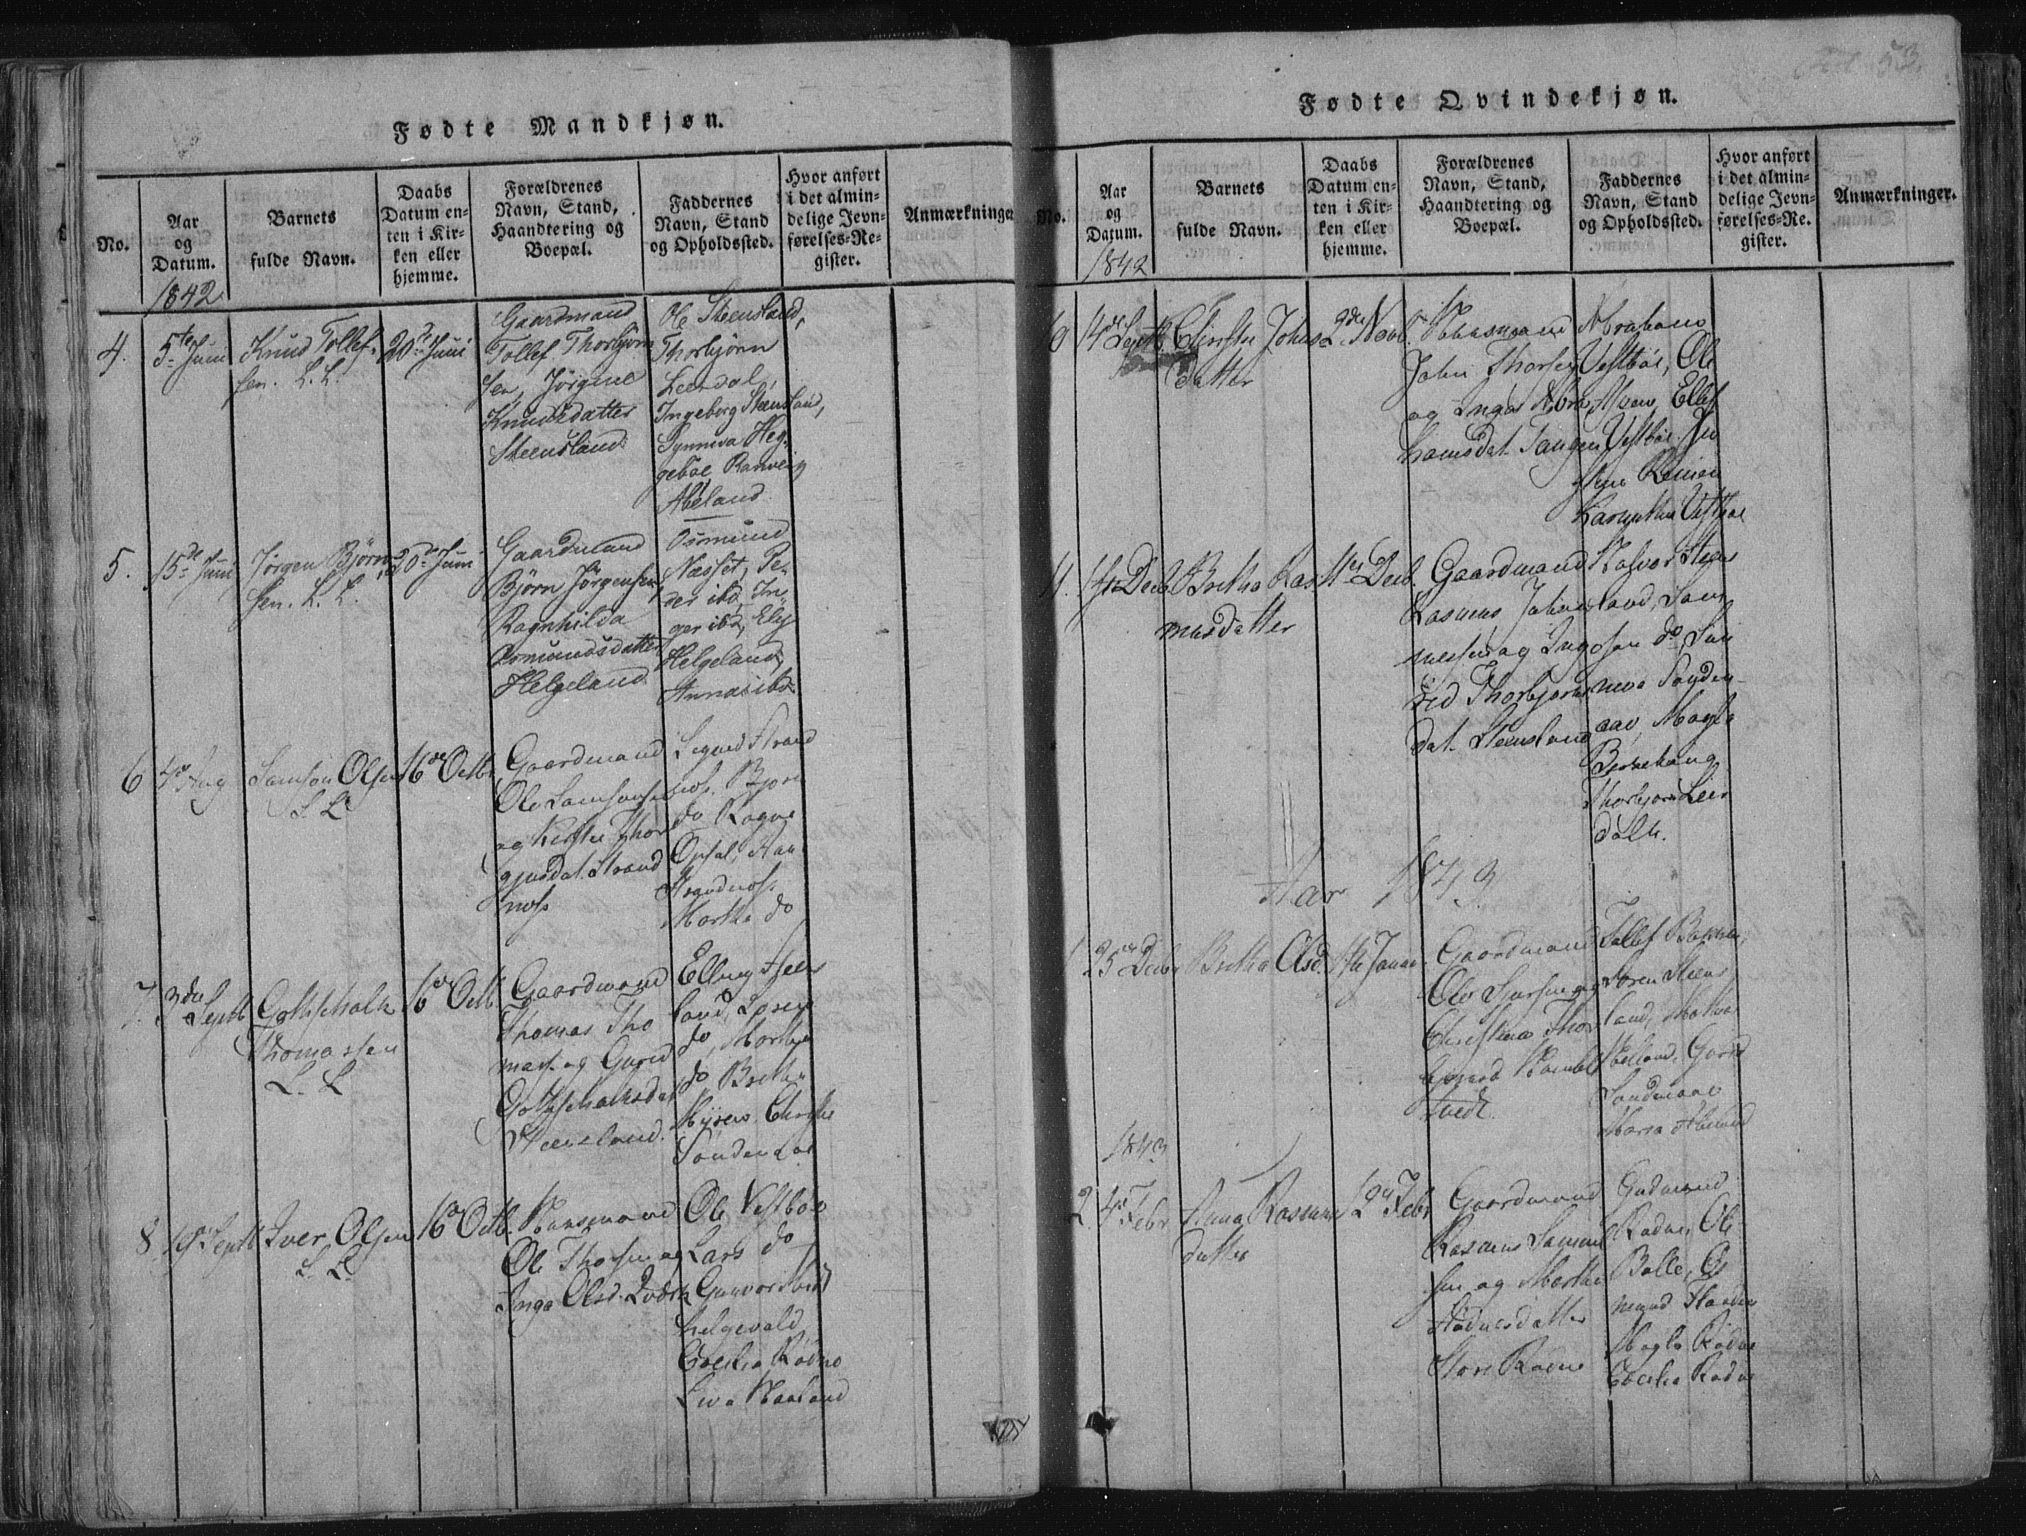 53.
Fødte Mandkjøn.
No.
Aar
og
Datum.
Barnets
fulde Navn.
Daabs
Datum en-
ten i Kir-
ken eller
hjemme.
Forældrenes
Navn, Stand,
Haandtering og
Boepæl.
Faddernes
Navn, Stand
og Opholdssted.
Hvor anført
i det almin-
delige Jevn-
førelses-Re-
gister.
Anmærkninger
1842
4.
5te Juni
Knud Tollef-
sen. L. L.
20de Juni
Gaardmand
Tollef Thorbjørn
sen, Jørgine
Knudsdatter
Steensland.
Ole Steensland,
Thorbjörn
Leerdal,
Ingeborg Steensland,
Synneva Heg-
geböe Ranveig
Abeland.
5.
15de Juni
Jörgen Björn
sen. L. L.
20de Juni
Gaardmand
Björn Jörgensen,
Ragnhilda
Osmundsdatter
Helgeland
Osmund
Næsset, Pe-
der ibd, In-
ger ibd, Ely
Helgeland,
Anna ibd.
6
4de Aug
Samson Olsen
L. L.
16de Octbr
Gaardmand
Ole Samsonsen
og Kirstie Thor
gjusdat. Strand
nos
Sigurd Strand
nos. Bjørn
do Ragna
Opsal,
Strandnos.
Martha do
7.
3die Septb
Gottschalk
Thomassen
L. L
16de Octb
Gaardmand
Thomas Tho
mas. og Gurid
Gottschalksdat
Steensland.
Elling Steens
land,
do, Martha
do Bretha
Myren Christie
Söndenaae
8
19de Septb
Iver Olsen
L. L.
16de Octb.
Huusmand
Ole Thorsen og
Inga Olsd.
Ole Vestböe
Lars do
Gunvor
Helgevold
Cecilia Rødne
Siva Haaland
Fødte Qvindekjøn.
No.
Aar
og
Datum.
Barnets
fulde Navn.
Daabs
Datum en-
ten i Kir-
ken eller
hjemme.
Forældrenes
Navn, Stand,
Haandtering og
Boepæl.
Faddernes
Navn, Stand
og Opholdssted.
Hvor anført
i det almin-
delige Jevn-
førelses-Re-
gister.
Anmærkninger.
1842
10
14de Septb.
Christie Johns
datter
2den Novb.
Huusmand
John Thorsen
og Inga Abra
hamsdat. Tangen
Abraham
Vestböe, Ole
Moen, Ellef
Vestböe.
Karen
Vestböe
11.
Decb
Bretha Ras
musdatter
Decb.
Gaardmand
Rasmus Johan
nessen og Ing
rid Thorbjørns
dat. Steensland
Halvor Steens
land, Sam
son do, Sun
neva Sonden-
aae, Magla
Birkehaug
Thorbjørn Leer
dalh.
Aar 1843.
1
25de Decbr
Bretha Olsd
Januar
Gaardmand
Ole Sjursen og
Christina Thor
bjørnsd
tvedt.
Tollef Bakken,
Soren Steens
land, Malena
Gurid
Söndenaae
Maria
1843
2.
4de Febr
Anna Rasmus
datter
12te Febr
Gaardmand
Rasmus Samuel
sen og Martha
Hadnesdatter
Store Rødne
Gudmund
Rødne, Ole
Bolle, Os
mund
Magla Rødne
Cecilia Rødne